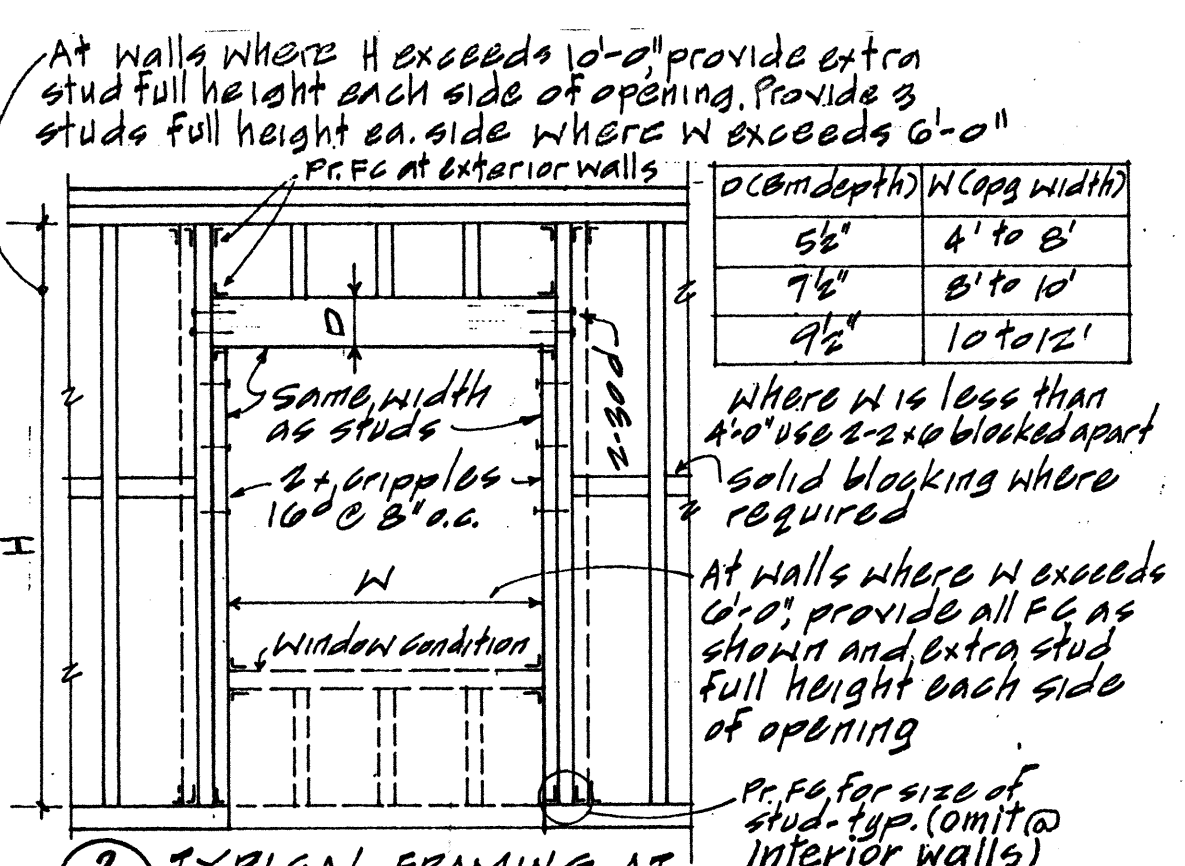 At walls where H exceeds 10'-0", provide extra
stud full height each side of opening. Provide 3
studs full height ea. side where W exceeds 6'-0"
Pr. FC at exterior walls
D (Bm depth) W (opg width)
5½" 4' to 8'
7½" 8' to 10'
9½" 10 to 12'
D
2-30d
Same width
as studs
where W is less than
4'-0" use 2-2x6 blocked apart
2x cripples
16d @ 8" o.c.
solid blocking where
required
H
W
At walls where W exceeds
6'-0", provide all FC as
shown and extra stud
full height each side
of opening
window condition
Pr. FC for size of
stud-typ. (omit @
interior walls)
2 TYPICAL FRAMING AT